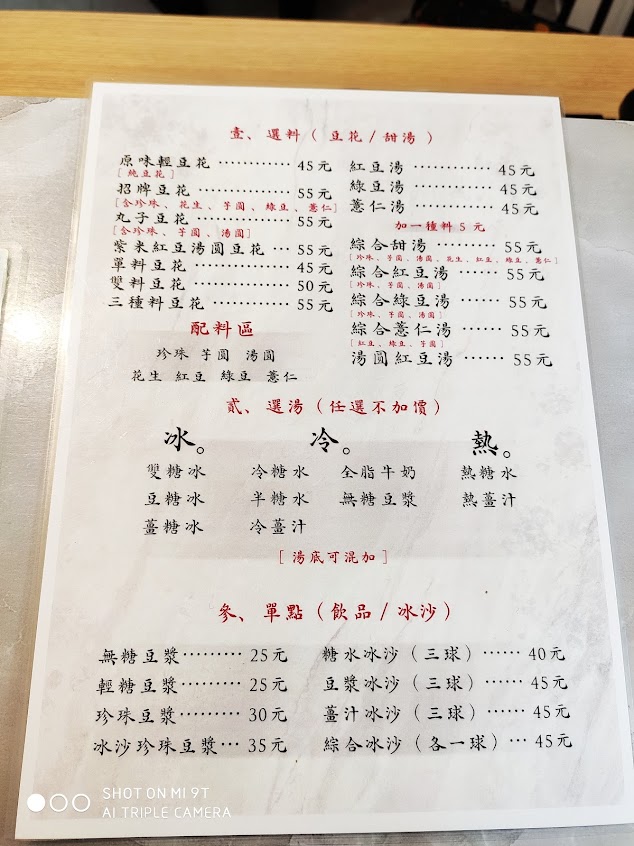 壹、選料（豆花/甜湯）
原味輕豆花 ············ 45元
[純豆花]
招牌豆花 ··············· 55元
[含珍珠、花生、芋圓、綠豆、薏仁]
丸子豆花 ··············· 55元
[含珍珠、芋圓、湯圓]
紫米紅豆湯圓豆花 ··· 55元
單料豆花 ··············· 45元
雙料豆花 ··············· 50元
三種料豆花 ············ 55元
配料區
珍珠 芋圓 湯圓
花生 紅豆 綠豆 薏仁
紅豆湯 ············ 45元
綠豆湯 ············ 45元
薏仁湯 ············ 45元
加一種料5元
綜合甜湯 ········· 55元
[珍珠、芋圓、湯圓、花生、紅豆、綠豆、薏仁]
綜合紅豆湯 ······ 55元
[珍珠、芋圓、湯圓]
綜合綠豆湯 ······ 55元
[珍珠、芋圓、湯圓]
綜合薏仁湯 ······ 55元
[紅豆、綠豆、芋圓]
湯圓紅豆湯 ······ 55元
貳、選湯（任選不加價）
冰。 冷。 熱。
雙糖冰 冷糖水 全脂牛奶 熱糖水
豆糖冰 半糖水 無糖豆漿 熱薑汁
薑糖冰 冷薑汁
[湯底可混加]
參、單點（飲品/冰沙）
無糖豆漿 ········· 25元
輕糖豆漿 ········· 25元
珍珠豆漿 ········· 30元
冰沙珍珠豆漿 ··· 35元
糖水冰沙（三球）······ 40元
豆漿冰沙（三球）······ 45元
薑汁冰沙（三球）······ 45元
綜合冰沙（各一球）··· 45元
SHOT ON MI 9T
AI TRIPLE CAMERA